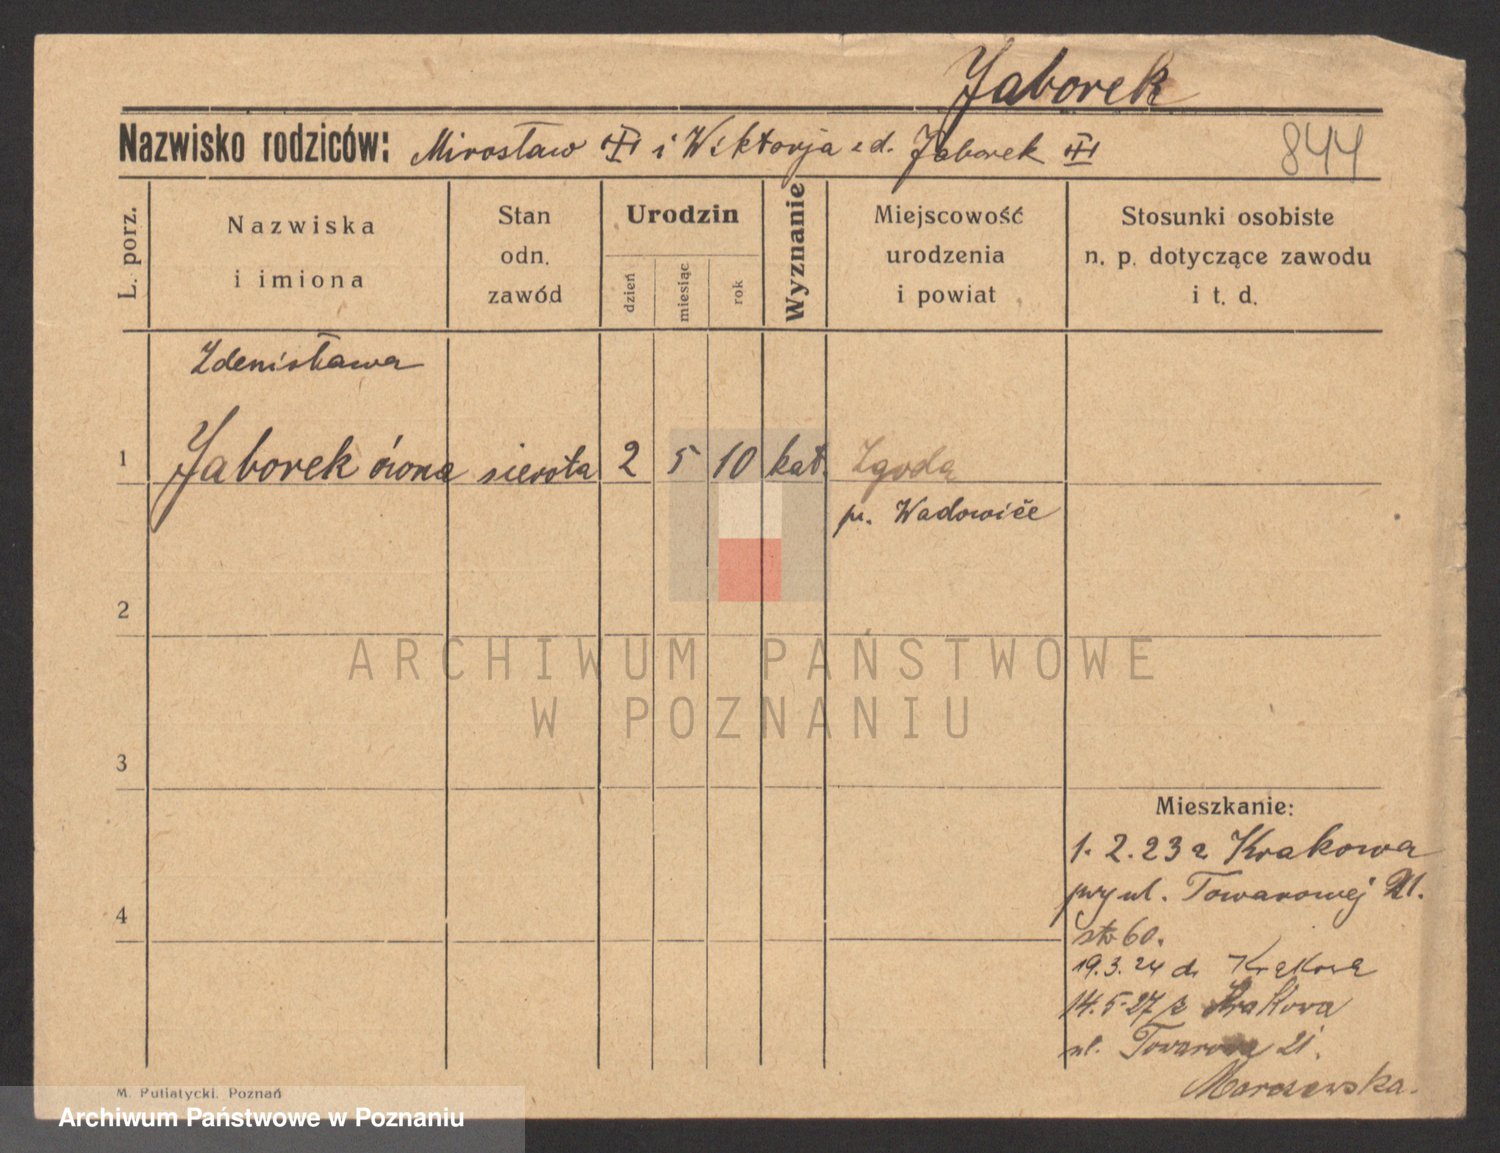 Jaborek
Nazwisko rodziców: Mirosław i Wiktorja z d. Jaborek
844
L. porz.
Nazwiska
i imiona
Stan
odn.
zawód
Urodzin
dzień
miesiąc
rok
Wyznanie
Miejscowość
urodzenia
i powiat
Stosunki osobiste
n. p. dotyczące zawodu
i t. d.
Zdenisława
1 Jaborek sierota 2 5 10 kat. Zgoda
p. Wadowice
2
ARCHIWUM PAŃSTWOWE
W POZNANIU
3
Mieszkanie:
1. 2. 23 z Krakowa
przy ul. Towarowej 21.
4
60.
19.3.24 do Krakowa
14.5.27 z Krakowa
ul. Towarowa 21.
M. Putiatycki. Poznań
Archiwum Państwowe w Poznaniu